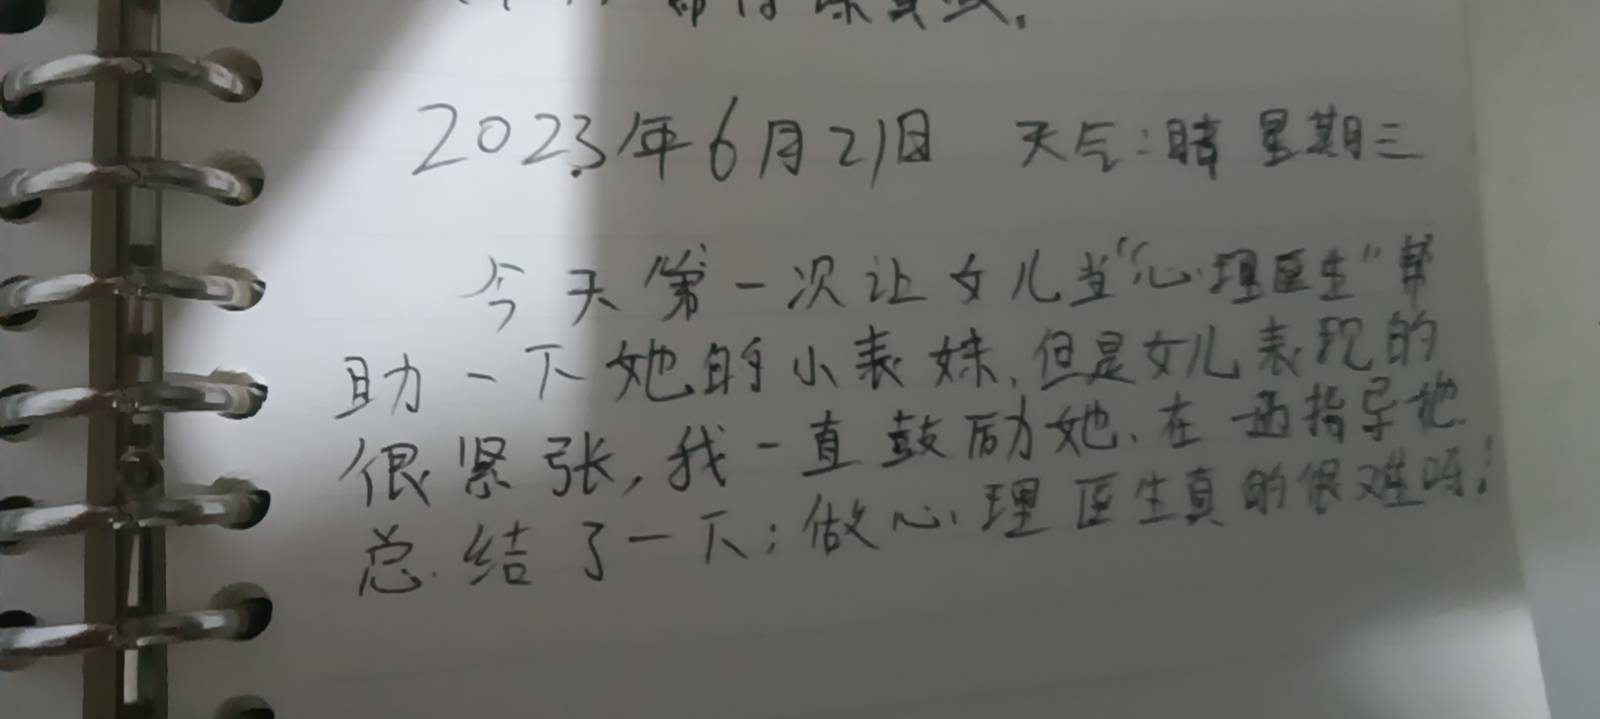 2023年6月21日 天气:晴 星期三
今天第一次让女儿当“心理医生”帮
助一下她的小表妹,但是女儿表现的
很紧张,我一直鼓励她,在一边指导她.
总结了一下:做心理医生真的很难呀!